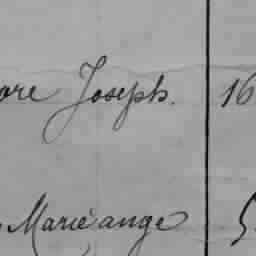 ore Joseph. 16
Marie ange 5